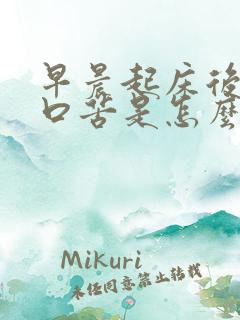 早晨起床後
口苦是怎麼
Mikuri
未经同意禁止转载